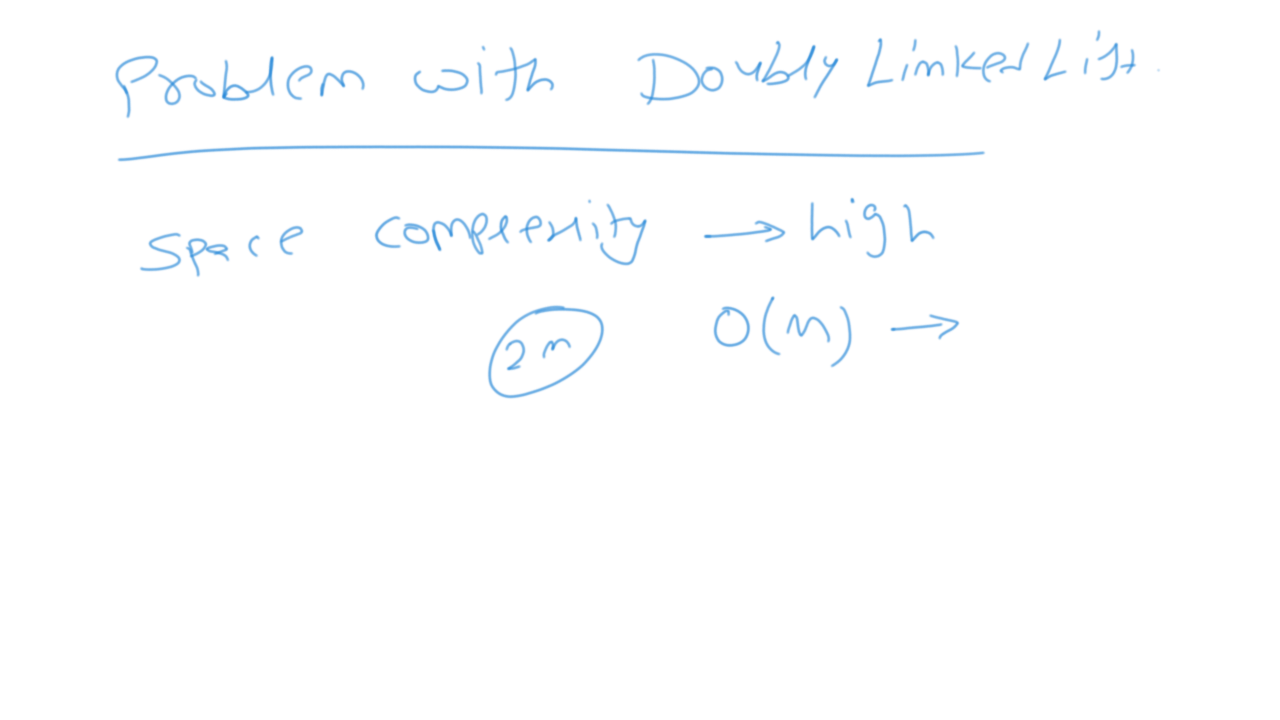 Problem with Doubly Linked List
Space complexity → high
2n O(n) →